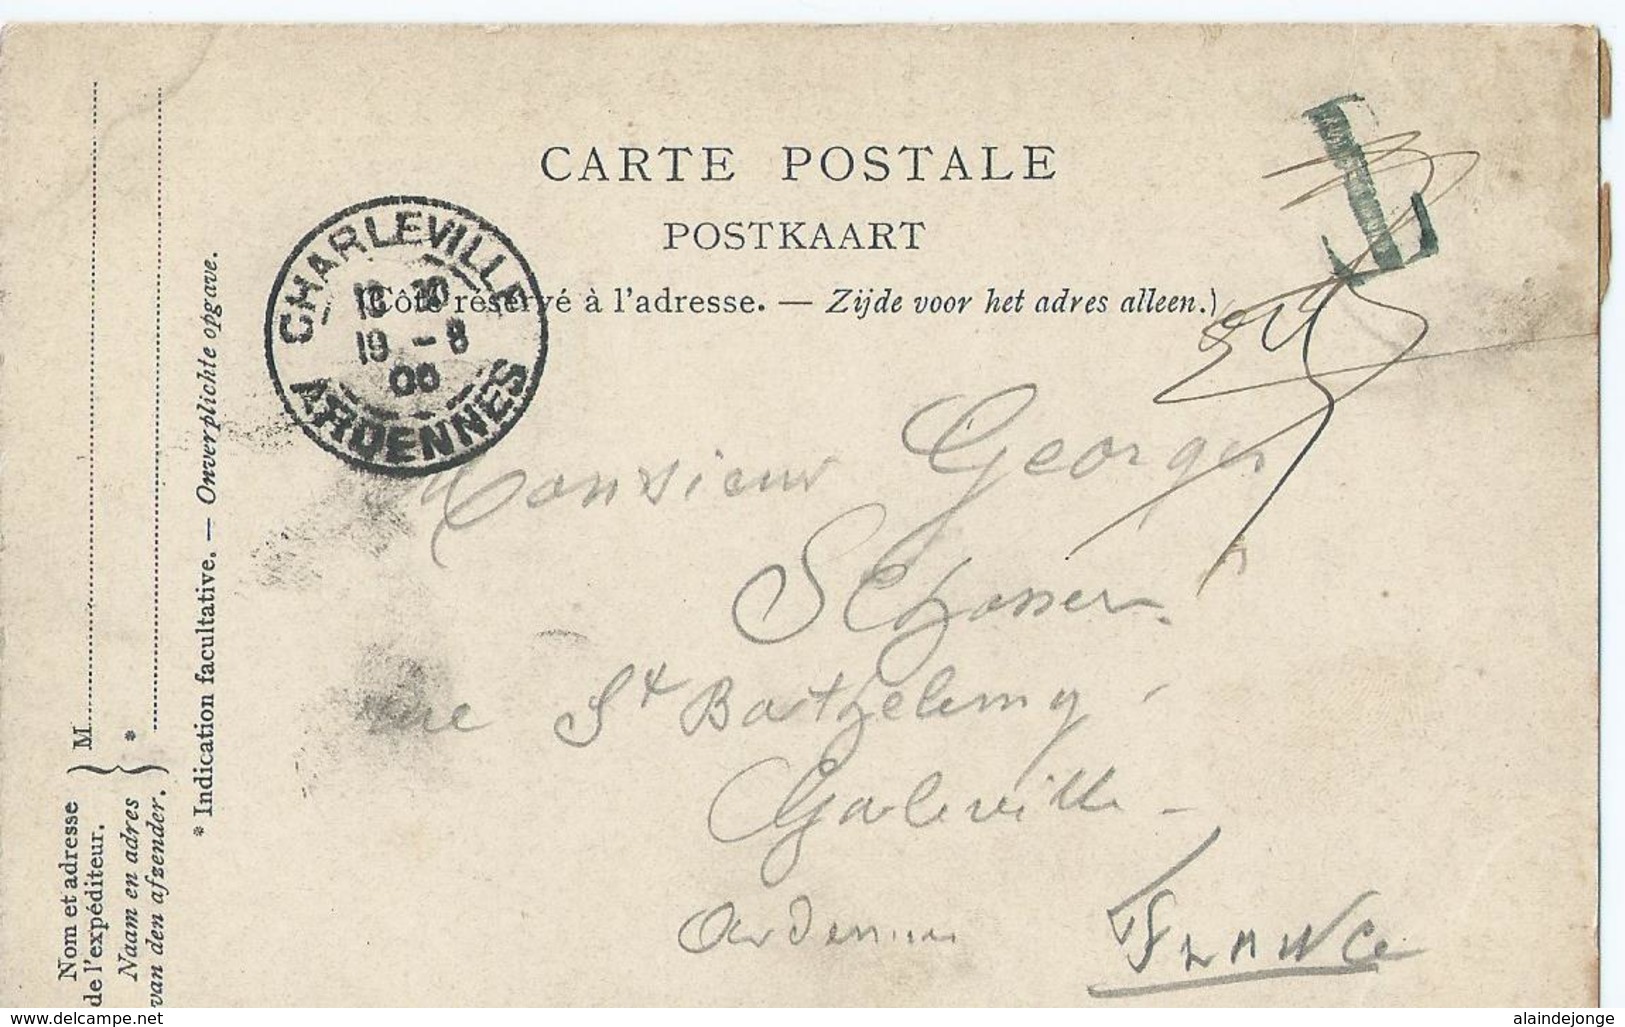 CARTE POSTALE
POSTKAART
(Côté réservé à l'adresse. — Zijde voor het adres alleen.)
CHARLEVILLE
19 - 8
ARDENNES
T
Monsieur Georges
rue St Barthelemy
Charleville
Ardennes
France
Nom et adresse
de l'expéditeur.
Naam en adres
van den afzender.
M
*
* Indication facultative. — Onverplichte opgave.
www.delcampe.net
alaindejonge